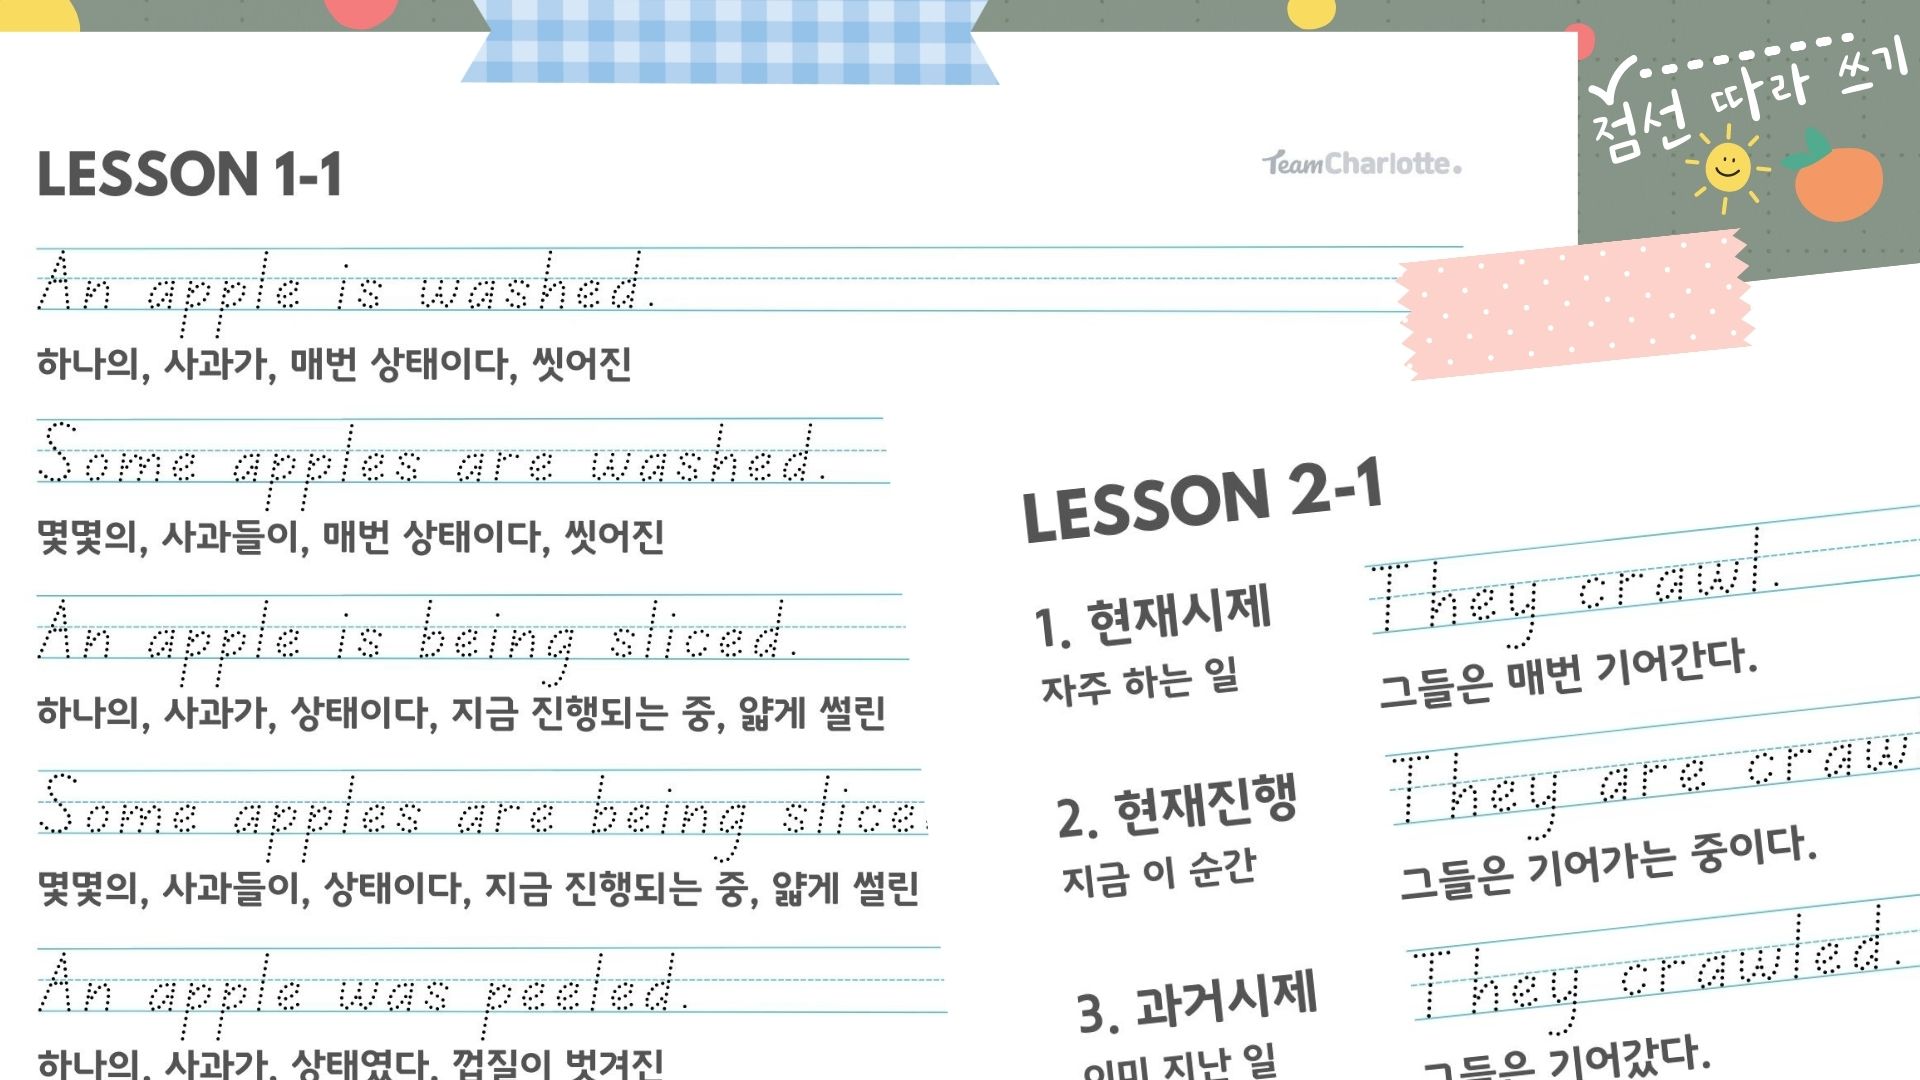 점선 따라 쓰기
LESSON 1-1
TeamCharlotte.
An apple is washed.
하나의, 사과가, 매번 상태이다, 씻어진
Some apples are washed.
몇몇의, 사과들이, 매번 상태이다, 씻어진
An apple is being sliced.
하나의, 사과가, 상태이다, 지금 진행되는 중, 얇게 썰린
Some apples are being slice
몇몇의, 사과들이, 상태이다, 지금 진행되는 중, 얇게 썰린
An apple was peeled.
하나의, 사과가, 상태였다, 껍질이 벗겨진
LESSON 2-1
1. 현재시제
자주 하는 일
They crawl.
그들은 매번 기어간다.
2. 현재진행
지금 이 순간
They are craw
그들은 기어가는 중이다.
3. 과거시제
이미 지난 일
They crawled.
그들은 기어갔다.